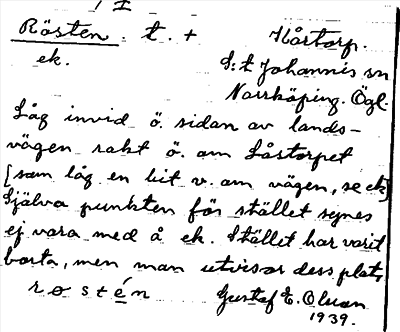 I
Rösten. t. + Hårtorp.
ek. S:t Johannis sn
Norrköping. Ögl.
Låg invid ö. sidan av lands-
vägen rakt ö. om Låstorpet
[som låg en bit v. om vägen, se ek]
Själva punkten för stället synes
ej vara med å ek. Stället har varit
borta, men man utvisar dess plats,
rostén Gustaf E. Olson
1939.